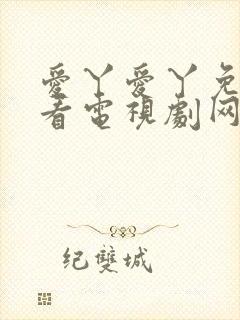 愛丫愛丫免
看電視劇网
纪雙城